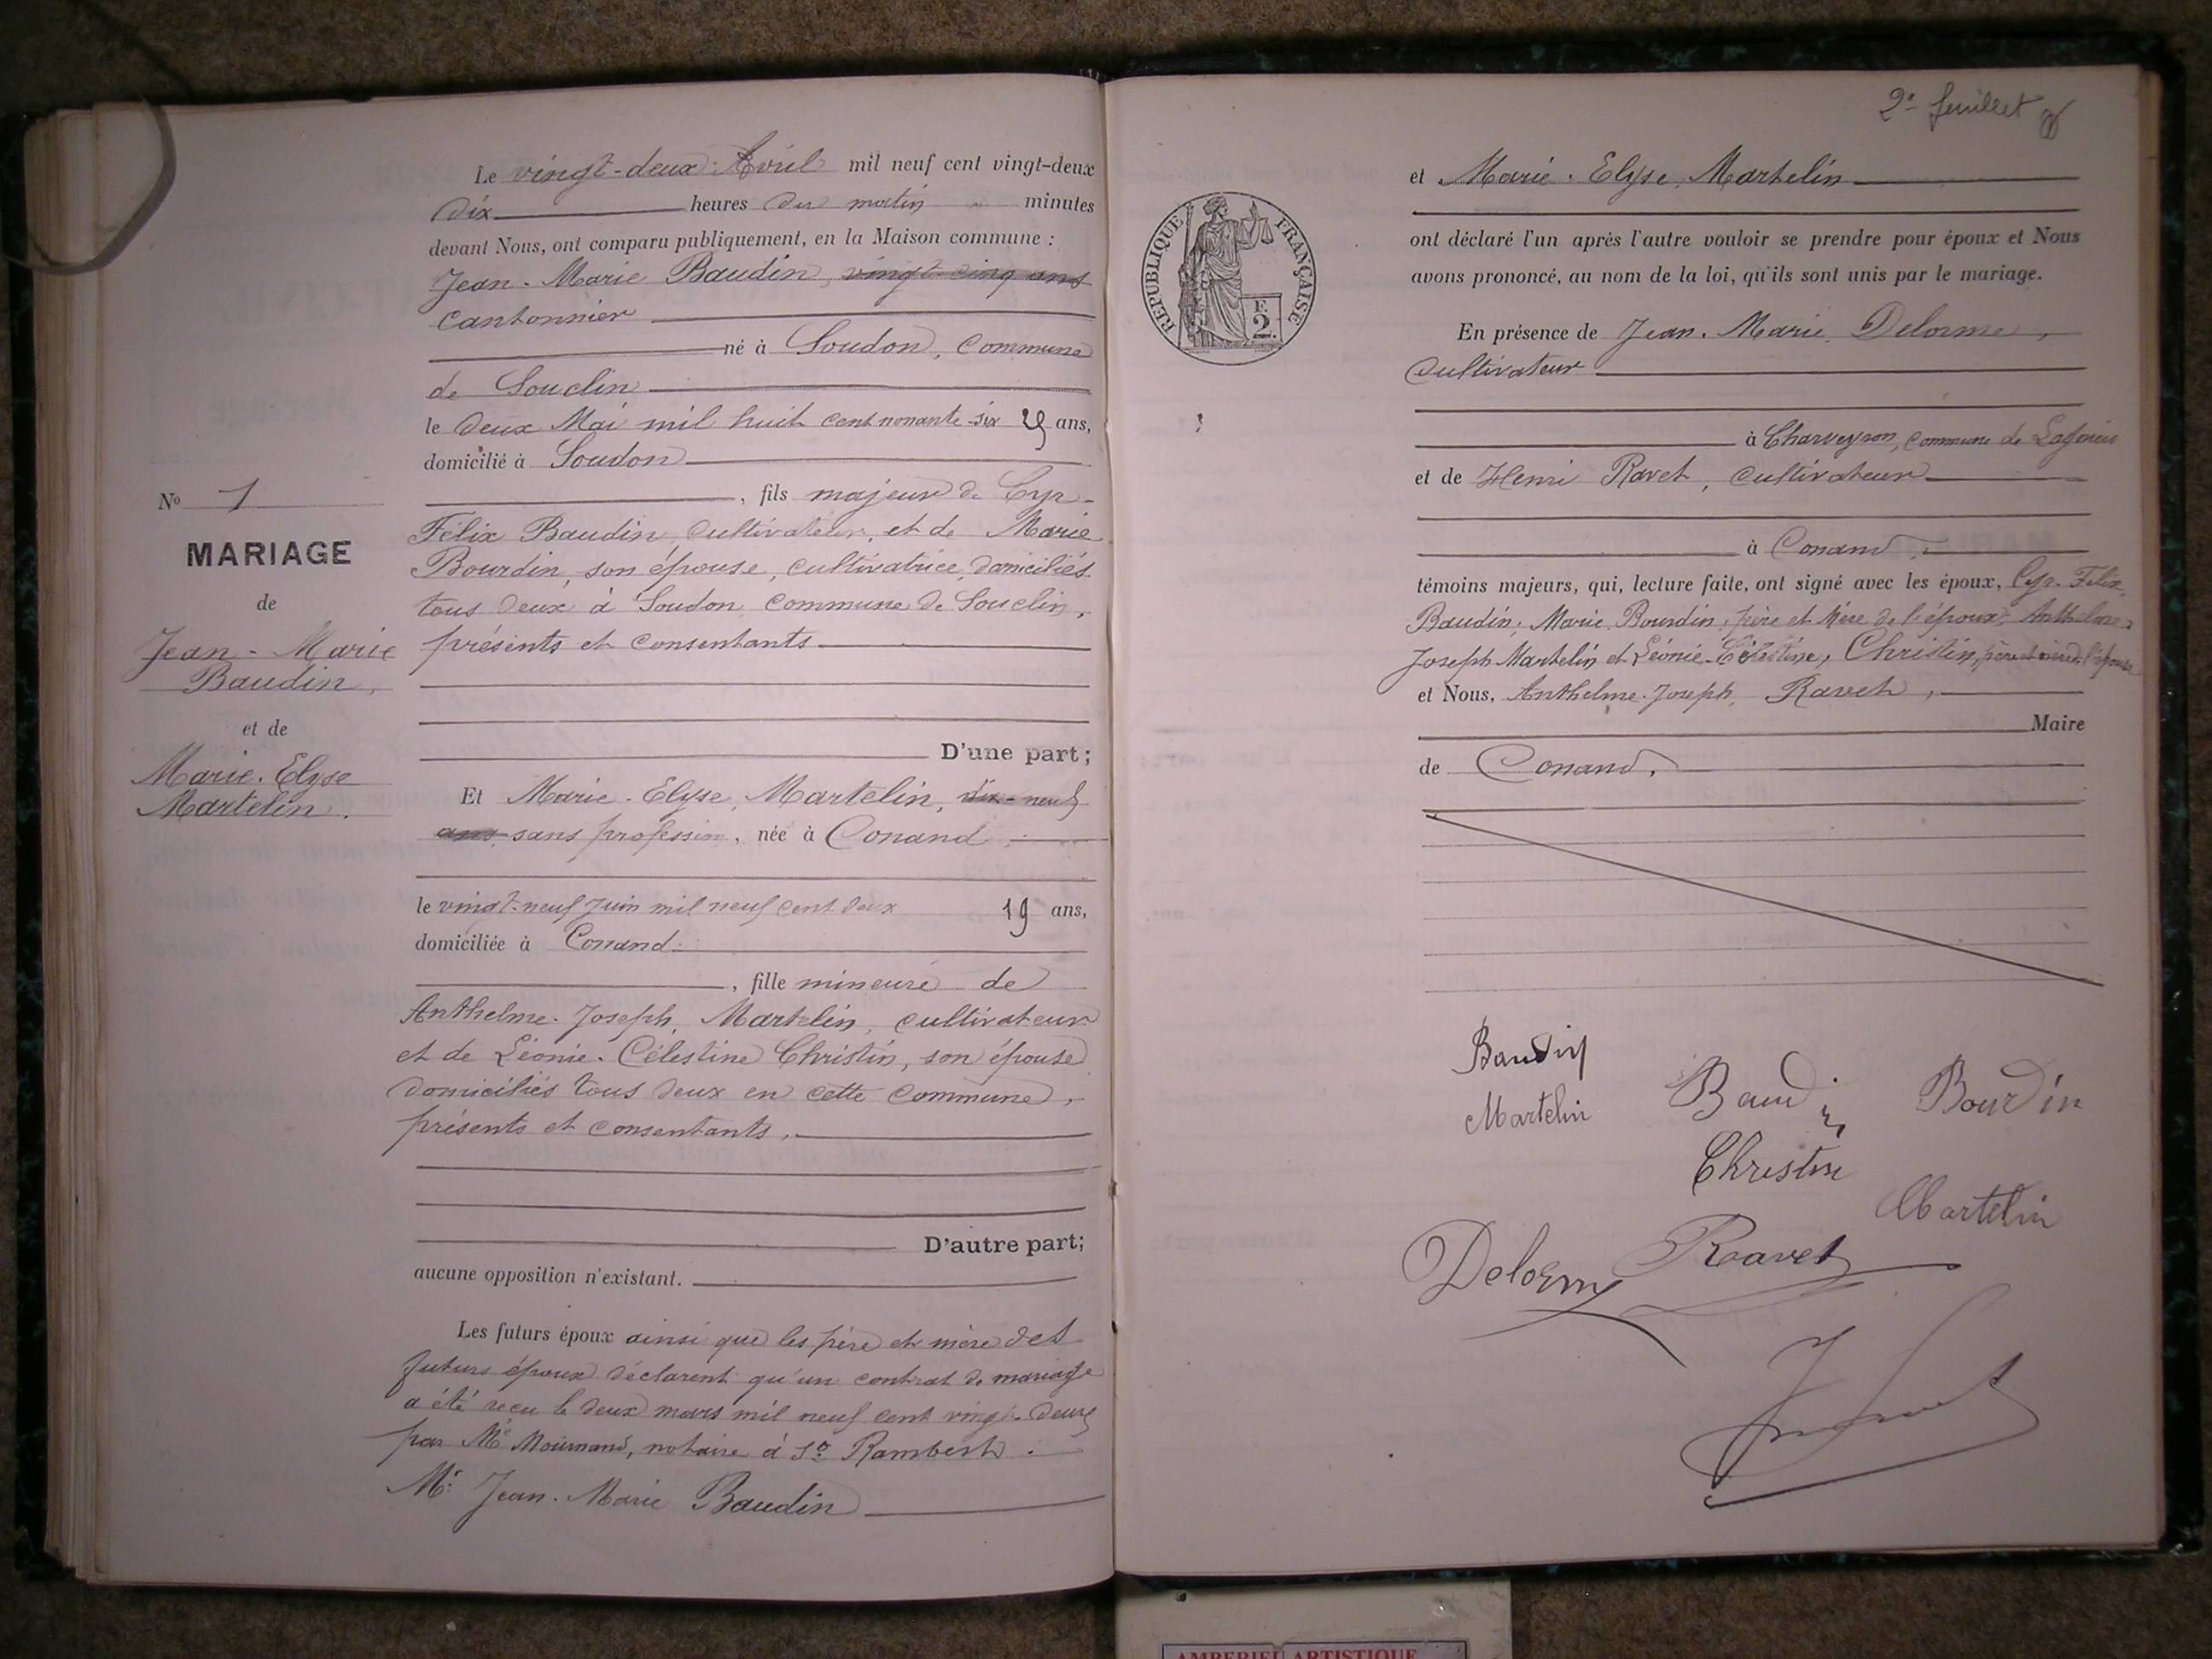 Le vingt-deux Avril mil neuf cent vingt-deux
dix heures du matin minutes
devant Nous, ont comparu publiquement, en la Maison commune :
Jean-Marie Baudin, vingt-cinq ans
cantonnier
né à Soudon, commune
de Souclin
le deux Mai mil huit cent nonante-six 25 ans,
domicilié à Soudon
, fils majeur de Cyr-
Félix Baudin, cultivateur, et de Marie
Bourdin, son épouse, cultivatrice, domiciliés
tous deux à Soudon commune de Souclin,
présents et consentants
D'une part;
No 1
MARIAGE
de
Jean-Marie
Baudin,
et de
Marie-Elyse
Martelin.
Et Marie-Elyse, Martelin, dix-neuf
ans sans profession, née à Conand
le vingt-neuf Juin mil neuf cent deux 19 ans,
domiciliée à Conand
, fille mineure de
Anthelme-Joseph, Martelin, cultivateur
et de Léonie-Célestine Christin, son épouse
domiciliés tous deux en cette commune,
présents et consentants,
D'autre part;
aucune opposition n'existant.
Les futurs époux ainsi que les père et mère des
futurs époux déclarent qu'un contrat de mariage
a été reçu le deux mars mil neuf cent vingt-deux
par Me, notaire à St Rambert.
Mr Jean-Marie Baudin
2e feuillet
et Marie-Elyse Martelin
REPUBLIQUE FRANÇAISE
F. 2
ont déclaré l'un après l'autre vouloir se prendre pour époux et Nous
avons prononcé, au nom de la loi, qu'ils sont unis par le mariage.
En présence de Jean-Marie Delorme,
cultivateur
à Charveyron, commune de
et de Henri Ravet, cultivateur
à Conand,
témoins majeurs, qui, lecture faite, ont signé avec les époux, Cyr-Félix,
Baudin, Marie Bourdin, père et Mère de l'époux, Anthelme-
Joseph Martelin et Léonie-Célestine, Christin, père et mère de l'épouse
et Nous, Anthelme-Joseph, Ravet,
Maire
de Conand.
Baudin
Martelin
Baudin
Bourdin
Christin
Martelin
Delorme
Ravet
AMBERIEU ARTISTIQUE